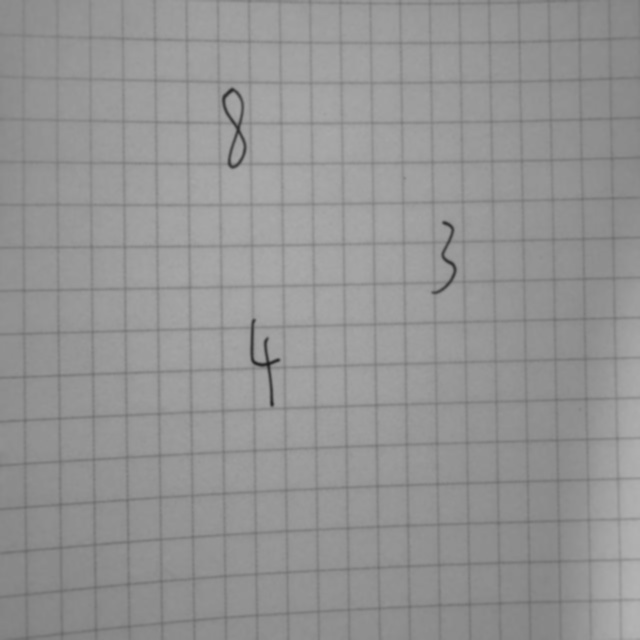 8
3
4